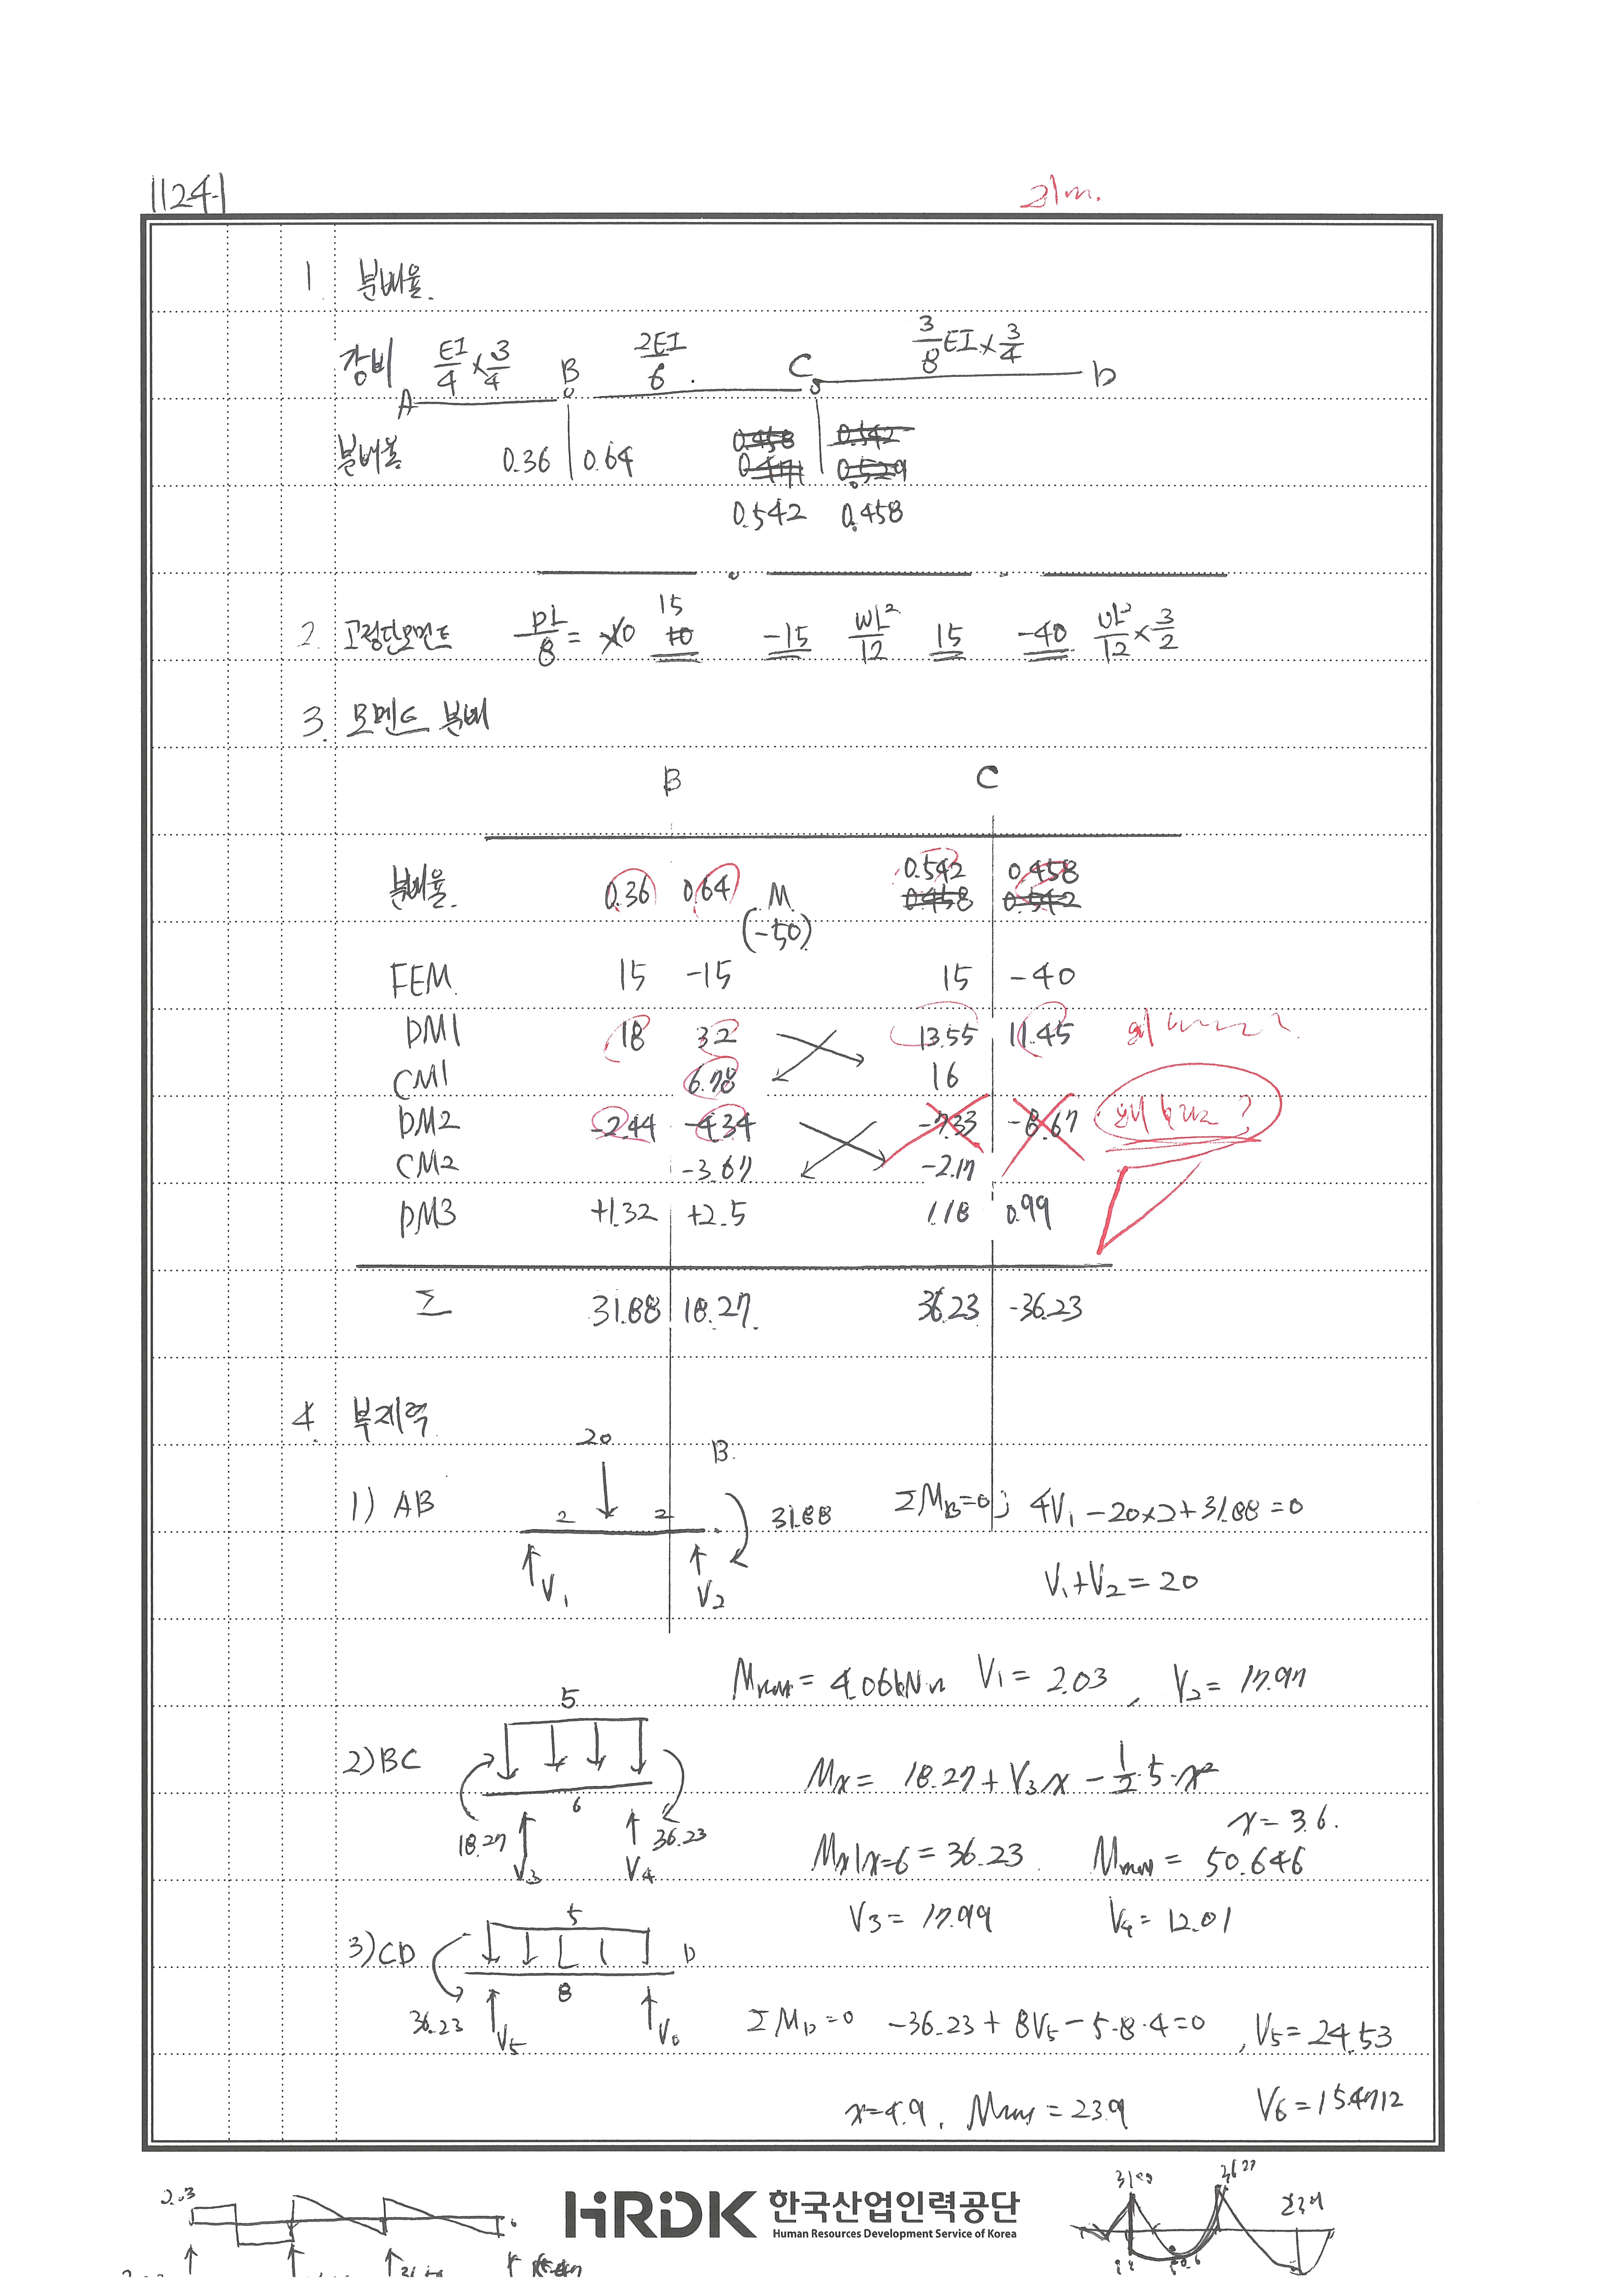 1124-1
1. 분배율.
강비 EI/4 × 3/4 B 2EI/6 . C 3/8 EI × 3/4
A D
분배율 0.36 0.64 0.458 0.542
0.471 0.529
0.542 0.458
2. 고정단모멘트 PL/8 = 10 15 -15 wL²/12 15 -40 wL²/12 × 3/2
3. 모멘트 분배
B C
분배율. 0.36 0.64 M 0.542 0.458
(-50) 0.458 0.542
FEM. 15 -15 15 -40
DM1 18 32 13.55 11.45
CM1 6.78 16
DM2 -2.44 -4.34 -7.33 -8.67
CM2 -3.67 -2.17
DM3 +1.32 +2.5 1.18 0.99
Σ 31.88 18.27 36.23 -36.23
4. 부재력
20 B.
1) AB 2 2 31.88 ΣM_B=0; 4V₁-20×2+31.88=0
V₁ V₂ V₁+V₂=20
Mmax = 4.06kNm V₁= 2.03, V₂= 17.97
5
2) BC Mx = 18.27+V₃x-1/2·5·x²
6 x=3.6.
18.27 V₃ V₄ 36.23 Mx|x=6 = 36.23 Mmax = 50.646
V₃= 17.99 V₄= 12.01
5
3) CD D
8
36.23 V₅ V₆ ΣM_D=0 -36.23+8V₅-5·8·4=0, V₅=24.53
x=4.9, Mmax=23.9 V₆=15.4712
2.03
HRDK 한국산업인력공단
Human Resources Development Service of Korea